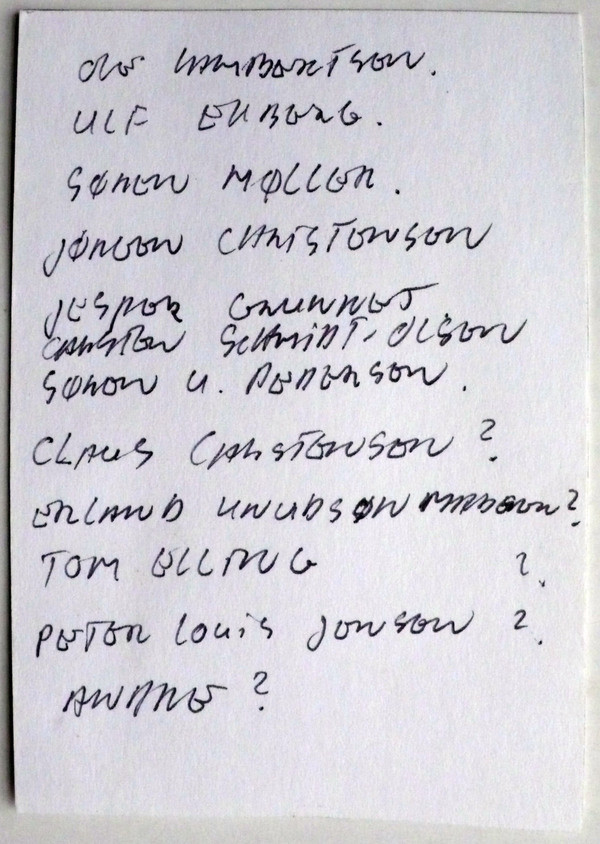 OLE LAMBERTSEN.
ULF EHBERG.
SØREN MØLLER.
JØRGEN CHRISTENSEN
JESPER GRUNNET
CARSTEN SCHMIDT-OLSEN
SØREN U. PEDERSEN.
CLAUS CARSTENSEN ?
ERLAND KNUDSØN MADSEN?
TOM ELLING ?.
PETER LOUIS JENSEN ?.
ANDRE ?